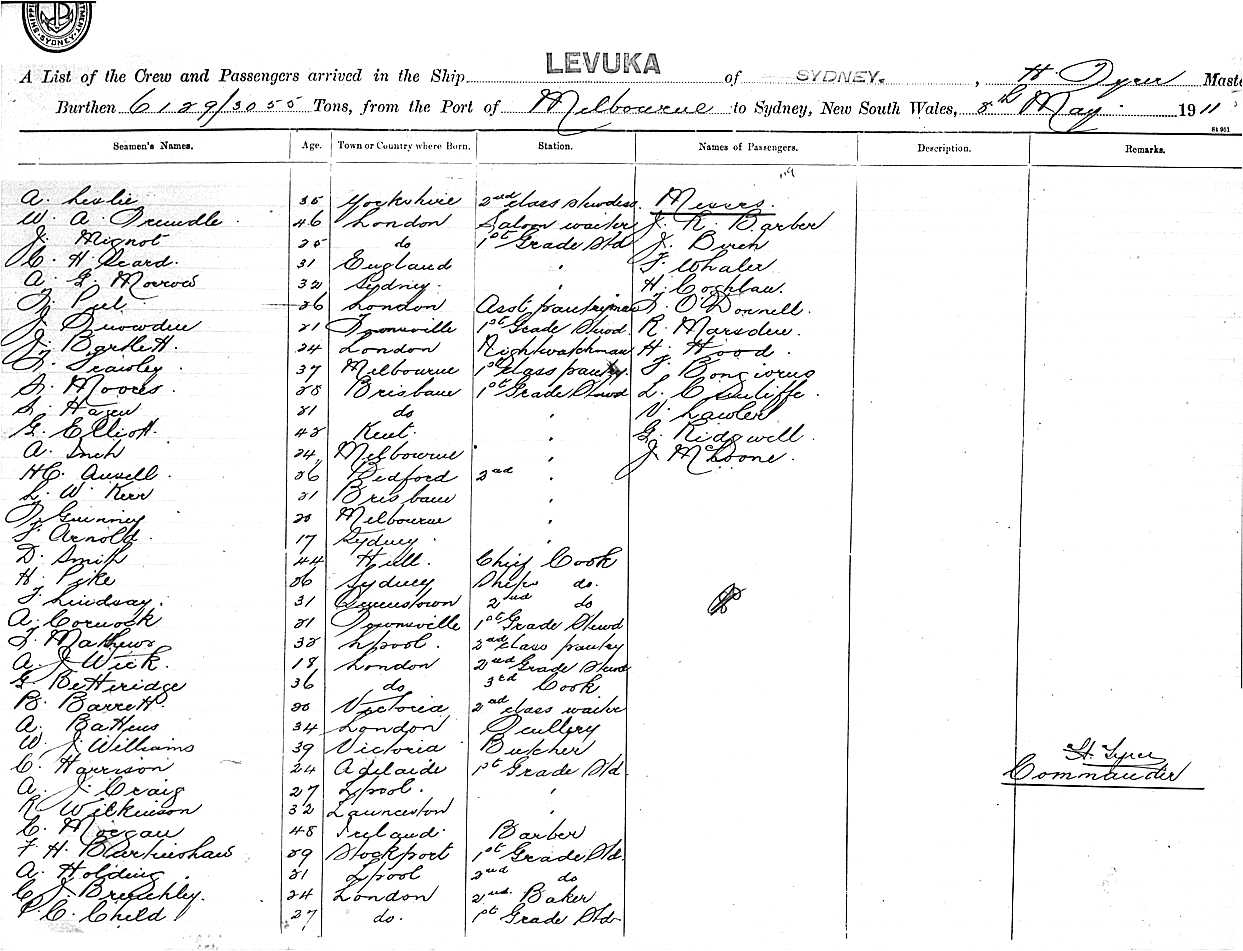 SYDNEY
LEVUKA
A List of the Crew and Passengers arrived in the Ship LEVUKA of SYDNEY. , H. Tyrer Maste
Burthen 6129/3055 Tons, from the Port of Melbourne to Sydney, New South Wales, 8th May 1911
St 901
Seamen's Names. Age. Town or Country where Born. Station. Names of Passengers. Description. Remarks.
A. Leslie 35 Yorkshire 2nd class stwdess Messrs.
W. A. Trundle 46 London Saloon waiter J. R. Barber
J. Mignot 25 do 1st Grade Std J. Birch
C. H. Seard. 31 England " F. Whaler
A. G. Morrow 32 Sydney. " H. Coghlan.
T. Peel 26 London Asst pantryman O'Donnell
J. Snowden 21 Townsville 1st Grade Stwd R. Marsden.
J. Bartlett 24 London Nightwatchman H. Hood.
Scawley 37 Melbourne 1st class pantry F. Bongiorno
S. Moores 28 Brisbane 1st Grade Stwd L. C. Sunliffe.
S. Hagen 21 do " V. Lawler
G. Elliott. 42 Kent. " G. Ridgwell.
A. Inch 24 Melbourne " J. McCoone.
H C. Ansell. 26 Bedford 2nd "
L. W. Kerr 21 Brisbane "
T. Guinney 20 Melbourne "
F. Arnold. 17 Sydney. "
D. Smith 44 Hull. Chief Cook
H. Pike 26 Sydney Ships do.
F. Lindsay. 31 Queenstown 2nd do
A. Cornock 21 Townsville 1st Grade Stwd
T. Mathews 32 Lpool. 2nd class pantry
A. J. Wick. 18 London 2nd Grade Stwd
G. Betteridge 36 do 3rd Cook
B. Barrett. 20 Victoria 2nd class waiter
A. Battens 34 London Scullery
W. J. Williams 39 Victoria Butcher
H. Tyrer
C. Harrison 24 Adelaide 1st Grade Std.
Commander
A. J. Craig 27 Lpool. "
R. Wilkinson 32 Launceston "
C. Morgan 48 Ireland. Barber
F. H. Birkinshaw 29 Stockport 1st Grade Std.
A. Holding. 21 Lpool 2nd do
C. J. Brenchley. 24 London 2nd Baker
P. C. Child 27 do. 1st Grade Std.